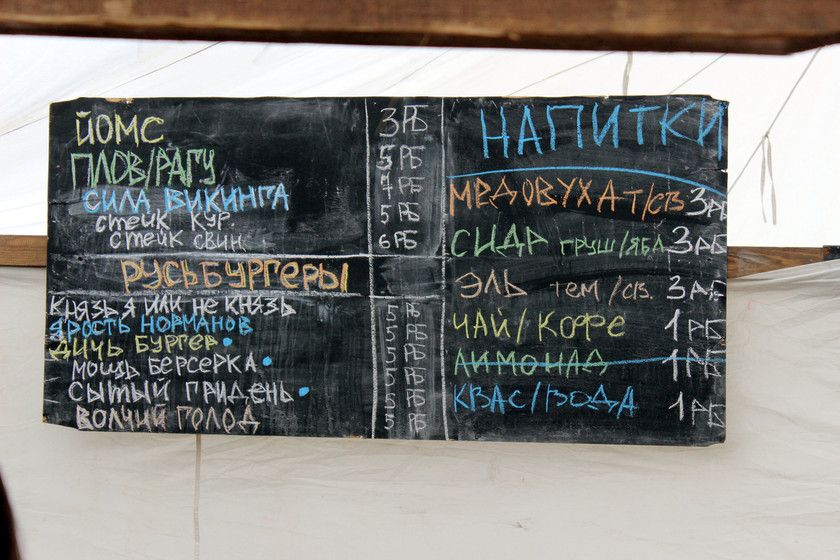 ЙОМС 3 РБ
ПЛОВ/РАГУ 5 РБ
СИЛА ВИКИНГА 7 РБ
стейк кур. 5 РБ
стейк свин. 6 РБ
РУСЬБУРГЕРЫ
КНЯЗЬ Я ИЛИ НЕ КНЯЗЬ 5 РБ
ЯРОСТЬ НОРМАНОВ 5 РБ
ДИЧЬ БУРГЕР 5 РБ
МОЩЬ БЕРСЕРКА 5 РБ
СЫТЫЙ ГРИДЕНЬ 5 РБ
ВОЛЧИЙ ГОЛОД 5 РБ
НАПИТКИ
МЕДОВУХА Т/СВ 3 РБ
СИДР ГРУШ/ЯБЛ 3 РБ
ЭЛЬ ТЕМ/СВ. 3 РБ
ЧАЙ/КОФЕ 1 РБ
ЛИМОНАД 1 РБ
КВАС/ВОДА 1 РБ